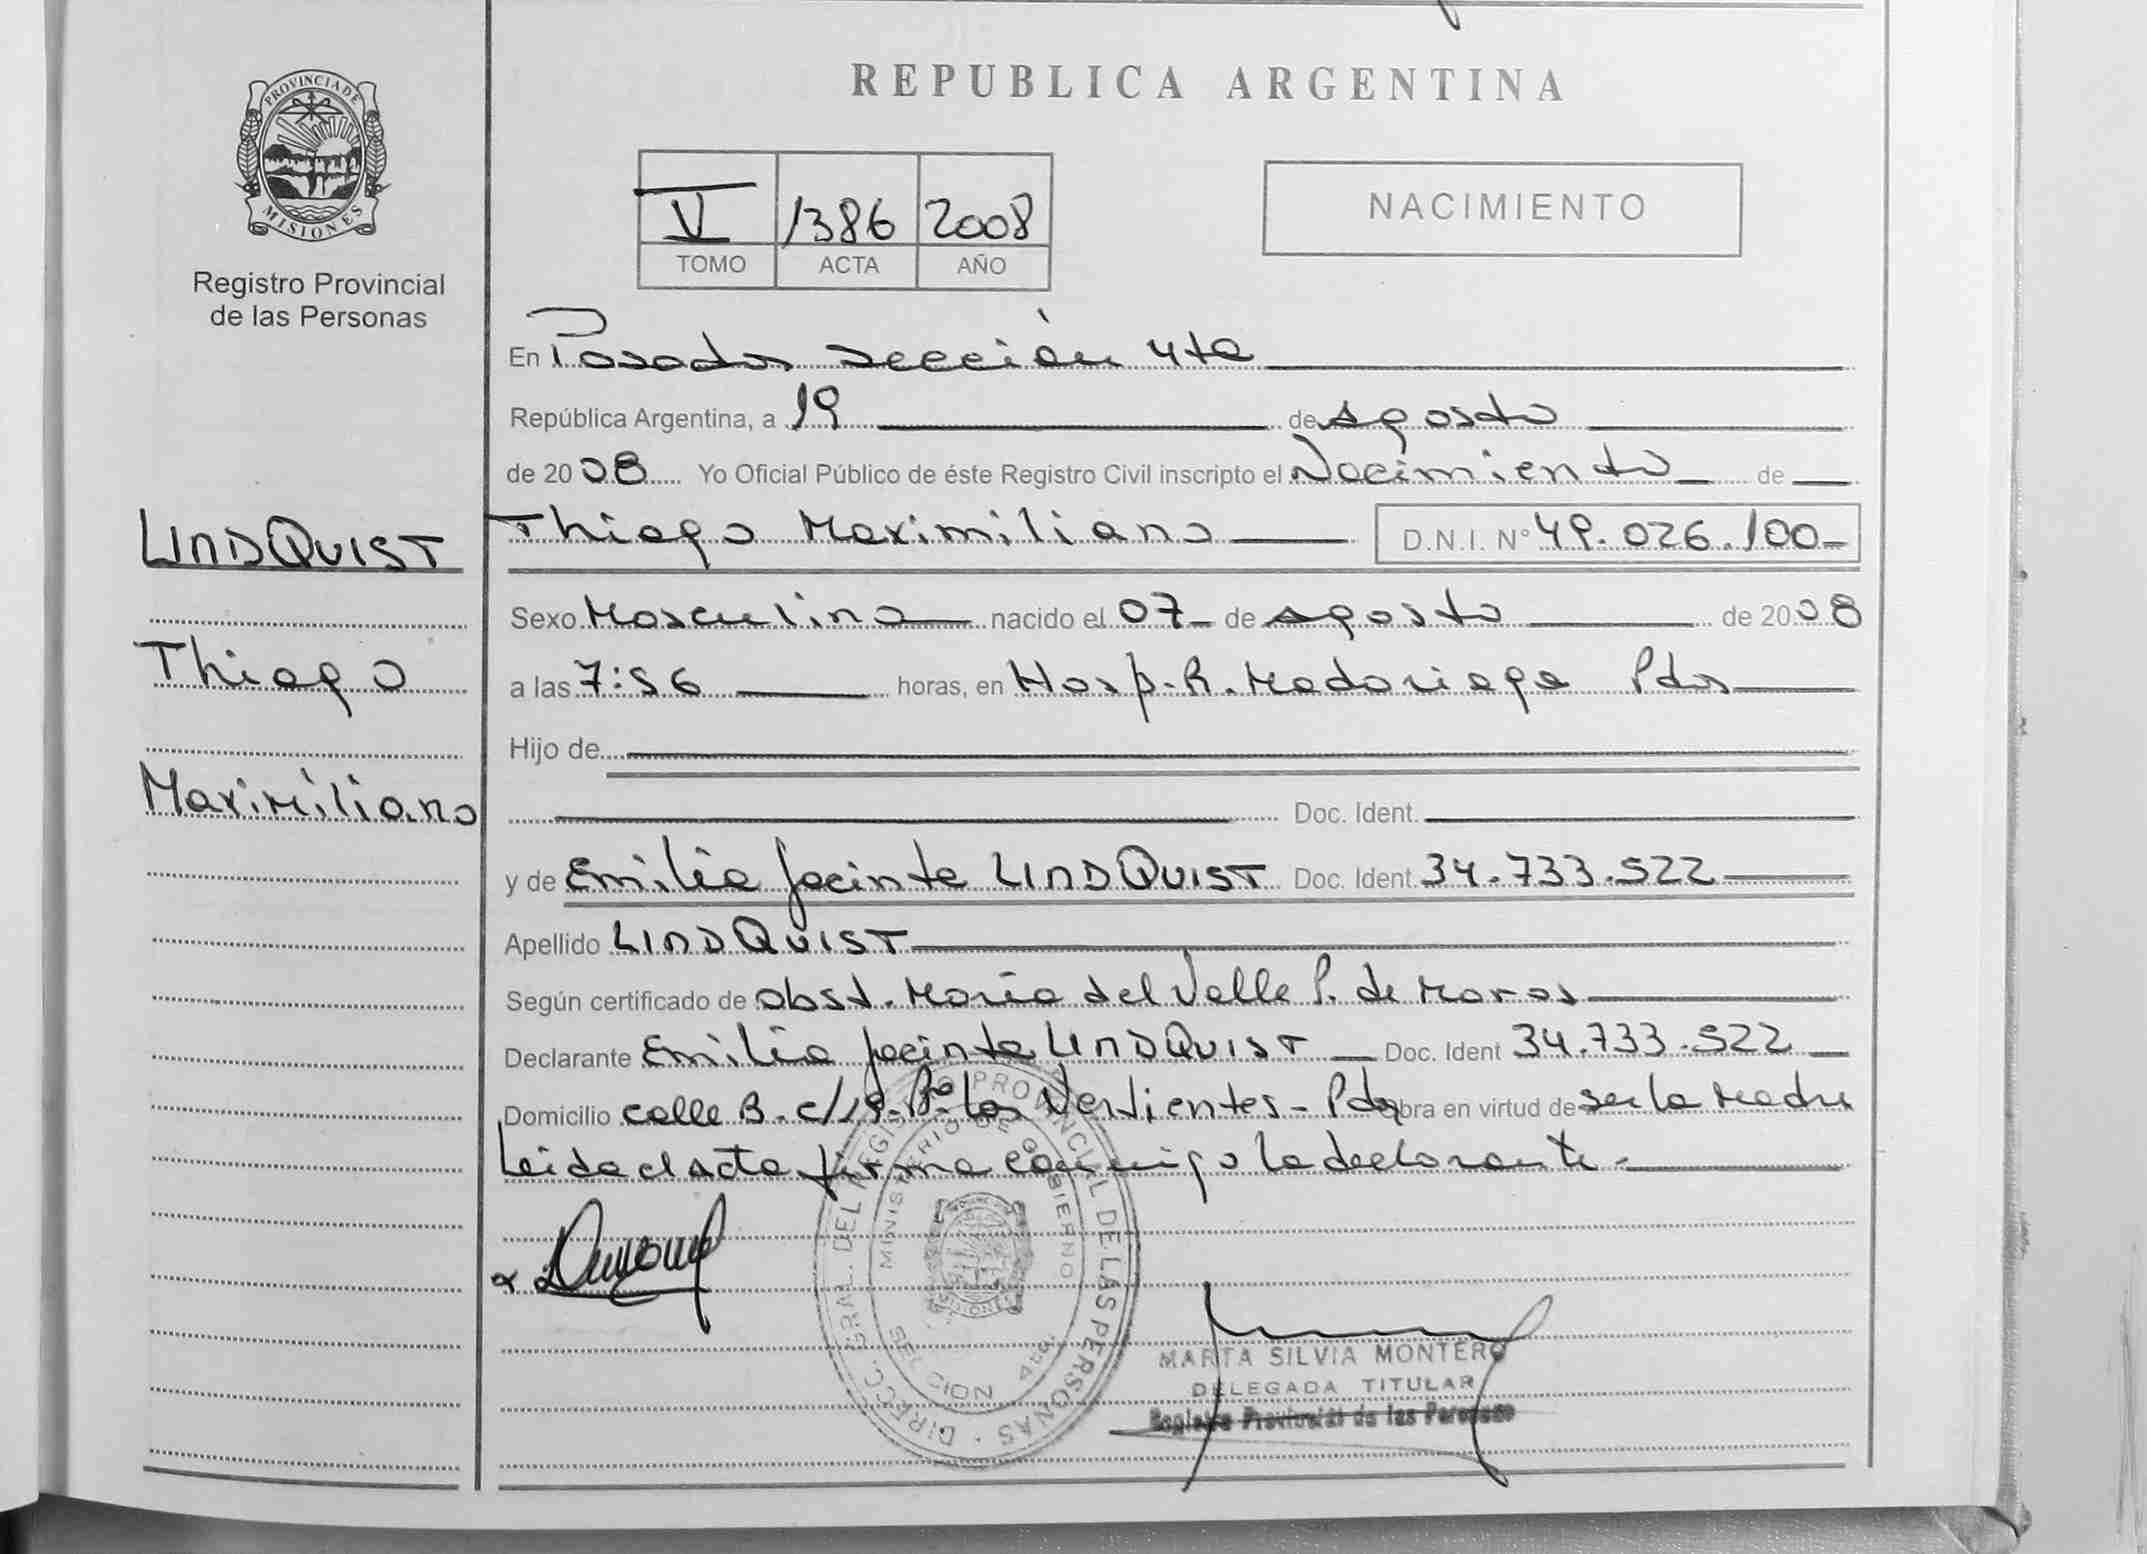 PROVINCIA DE
MISIONES
Registro Provincial
de las Personas
LINDQUIST
Thiago
Maximiliano
REPUBLICA ARGENTINA
V 1386 2008
TOMO ACTA AÑO
NACIMIENTO
En Posadas sección 4ta
República Argentina, a 19 de Agosto
de 2008 Yo Oficial Público de éste Registro Civil inscripto el Nacimiento de
Thiago Maximiliano D.N.I. N° 49.026.100-
Sexo Masculino nacido el 07- de Agosto de 2008
a las 7:56 horas, en Hosp. R. Madariaga Pdas
Hijo de
Doc. Ident.
y de Emilia Jacinta LINDQUIST Doc. Ident. 34.733.522
Apellido LINDQUIST
Según certificado de obst. María del Valle P. de Moras
Declarante Emilia Jacinta LINDQUIST Doc. Ident 34.733.522
Domicilio calle B. c/19- B° Las Vertientes - Pdas obra en virtud de ser la Madre
Leida el acta firma conmigo la declarante -
DIRECC. GRAL. DEL REGISTRO PROVINCIAL DE LAS PERSONAS
MINISTERIO DE GOBIERNO
MISIONES
SECCION 4ta.
MARTA SILVIA MONTERO
DELEGADA TITULAR
Registro Provincial de las Personas